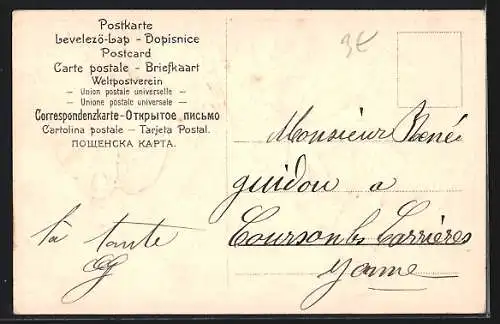 Postkarte
Levelező-Lap - Dopisnice
Postcard
Carte postale - Briefkaart
Weltpostverein
- Union postale universelle -
- Unione postale universale -
Correspondenzkarte - Открытое письмо
Cartolina postale - Tarjeta Postal.
ПОЩЕНСКА КАРТА.
3€
Monsieur René
guidou a
Courson les Carrières
Yonne
ta tante